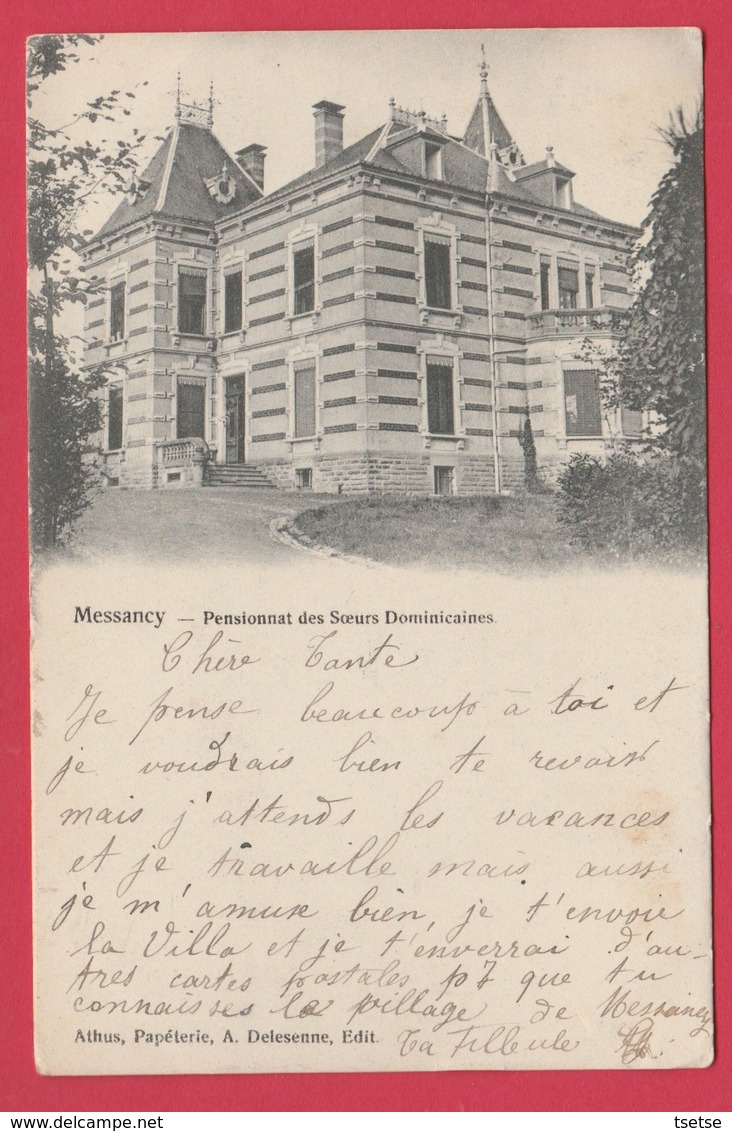 Messancy — Pensionnat des Sœurs Dominicaines.
Chère Tante
Je pense beaucoup à toi et
je voudrais bien te revoir
mais j'attends les vacances
et je travaille mais aussi
je m'amuse bien, je t'envoie
la Villa et je t'enverrai d'au-
tres cartes postales pr que tu
connaisses le village de Messancy
Athus, Papéterie, A. Delesenne, Edit.
Ta Filleule
tsetse